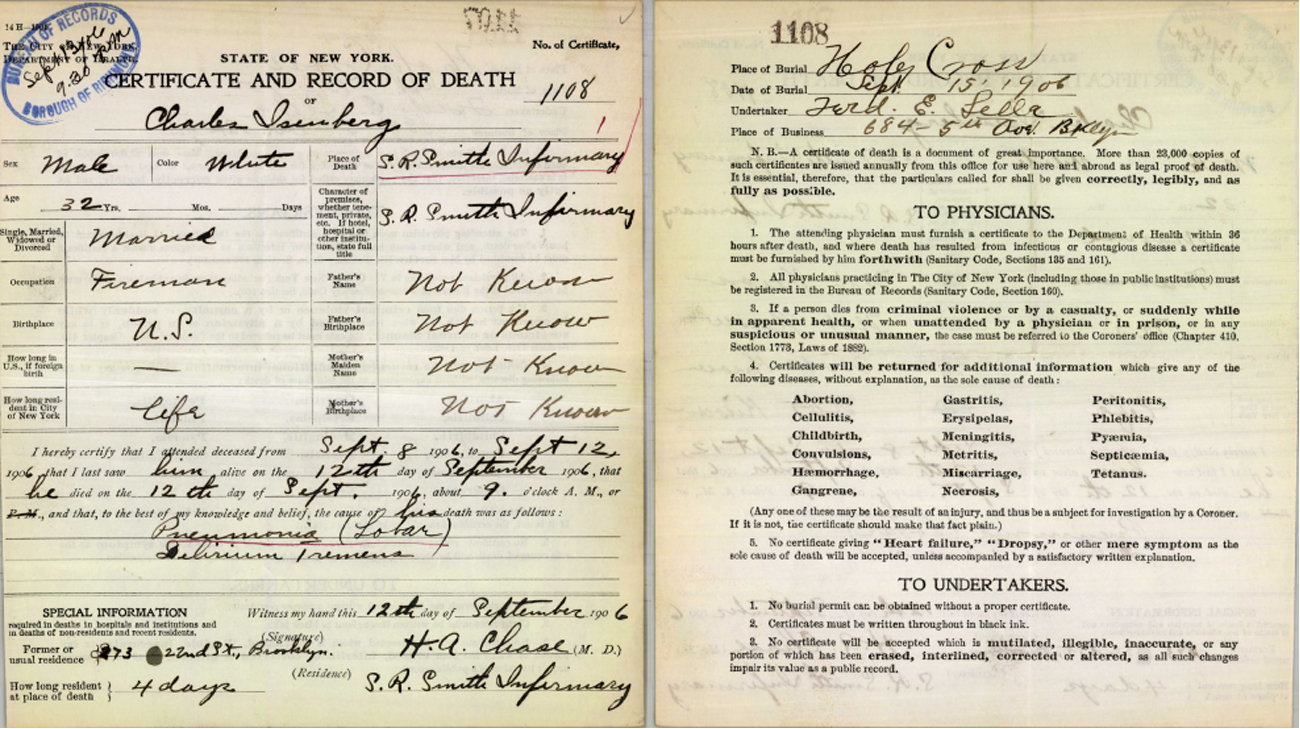 THE CITY OF NEW YORK.
DEPARTMENT OF HEALTH.
BUREAU OF RECORDS
Sept 13 06
9.30
BOROUGH OF RICHMOND
STATE OF NEW YORK.
No. of Certificate,
CERTIFICATE AND RECORD OF DEATH
1108
OF
Charles Isenberg
1
Sex Male Color White Place of Death S. R. Smith Infirmary
Age 32 Yrs. Mos. Days
Character of premises, whether tenement, private, etc. If hotel, hospital or other institution, state full title S. R. Smith Infirmary
Single, Married, Widowed or Divorced Married
Occupation Fireman Father's Name Not Know
Birthplace U.S. Father's Birthplace Not Know
How long in U.S., if foreign birth — Mother's Maiden Name Not Know
How long resident in City of New York Life Mother's Birthplace Not Know
I hereby certify that I attended deceased from Sept. 8 1906, to Sept 12,
1906, that I last saw him alive on the 12th day of September 1906, that
he died on the 12th day of Sept. 1906, about 9. o'clock A. M., or
P. M., and that, to the best of my knowledge and belief, the cause of his death was as follows:
Pneumonia (Lobar)
Delirium Tremens
SPECIAL INFORMATION
required in deaths in hospitals and institutions and
in deaths of non-residents and recent residents.
Witness my hand this 12th day of September 1906
Former or usual residence 273 22nd St., Brooklyn.
(Signature) H. A. Chase (M. D.)
How long resident at place of death } 4 days
(Residence) S. R. Smith Infirmary
1108
Place of Burial Holy Cross
Date of Burial Sept. 15, 1906
Undertaker Ferd. E. Sella
Place of Business 684 - 5th Ave. Bklyn
N. B.—A certificate of death is a document of great importance. More than 23,000 copies of
such certificates are issued annually from this office for use here and abroad as legal proof of death.
It is essential, therefore, that the particulars called for shall be given correctly, legibly, and as
fully as possible.
TO PHYSICIANS.
1. The attending physician must furnish a certificate to the Department of Health within 36
hours after death, and where death has resulted from infectious or contagious disease a certificate
must be furnished by him forthwith (Sanitary Code, Sections 135 and 161).
2. All physicians practicing in The City of New York (including those in public institutions) must
be registered in the Bureau of Records (Sanitary Code, Section 160).
3. If a person dies from criminal violence or by a casualty, or suddenly while
in apparent health, or when unattended by a physician or in prison, or in any
suspicious or unusual manner, the case must be referred to the Coroners' office (Chapter 410,
Section 1773, Laws of 1882).
4. Certificates will be returned for additional information which give any of the
following diseases, without explanation, as the sole cause of death:
Abortion, Gastritis, Peritonitis,
Cellulitis, Erysipelas, Phlebitis,
Childbirth, Meningitis, Pyæmia,
Convulsions, Metritis, Septicæmia,
Hæmorrhage, Miscarriage, Tetanus.
Gangrene, Necrosis,
(Any one of these may be the result of an injury, and thus be a subject for investigation by a Coroner.
If it is not, the certificate should make that fact plain.)
5. No certificate giving "Heart failure," "Dropsy," or other mere symptom as the
sole cause of death will be accepted, unless accompanied by a satisfactory written explanation.
TO UNDERTAKERS.
1. No burial permit can be obtained without a proper certificate.
2. Certificates must be written throughout in black ink.
3. No certificate will be accepted which is mutilated, illegible, inaccurate, or any
portion of which has been erased, interlined, corrected or altered, as all such changes
impair its value as a public record.